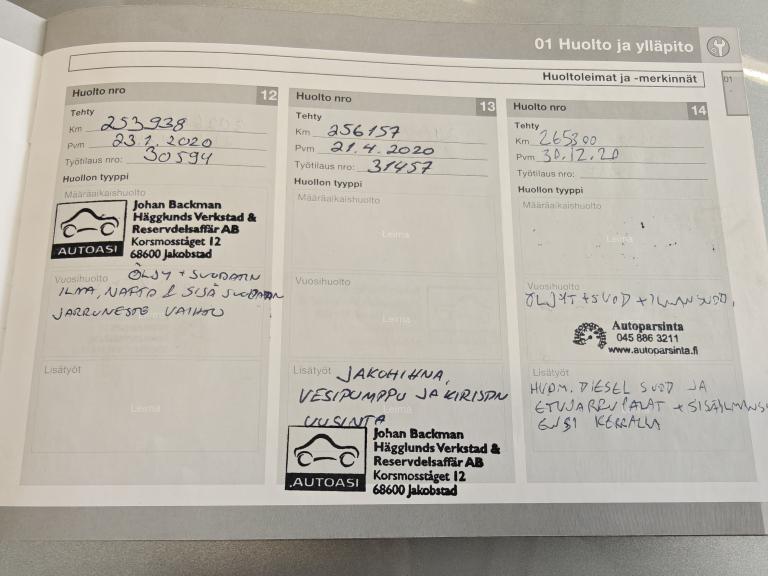 01 Huolto ja ylläpito
Huoltoleimat ja -merkinnät
01
Huolto nro 12
Tehty
Km 253938
Pvm 23.1.2020
Työtilaus nro: 30594
Huollon tyyppi
Määräaikaishuolto
Johan Backman
Hägglunds Verkstad &
Reservdelsaffär AB
Korsmosståget 12
68600 Jakobstad
AUTOASI
Vuosihuolto
ÖLJY + SUODATIN
ILMA, NAFTA & SISÄ SUODATIN
JARRUNESTE VAIHTO
Lisätyöt
Leima
Huolto nro 13
Tehty
Km 256157
Pvm 21.4.2020
Työtilaus nro: 31457
Huollon tyyppi
Määräaikaishuolto
Leima
Vuosihuolto
Leima
Lisätyöt
JAKOHIHNA,
VESIPUMPPU JA KIRISTIN
Leima
UUSINTA
Johan Backman
Hägglunds Verkstad &
Reservdelsaffär AB
Korsmosståget 12
68600 Jakobstad
AUTOASI
Huolto nro 14
Tehty
Km 265300
Pvm 30.12.20
Työtilaus nro:
Huollon tyyppi
Määräaikaishuolto
Leima
Vuosihuolto
ÖLJYT + SUOD + ILMANSUOD,
Autoparsinta
045 886 3211
www.autoparsinta.fi
Lisätyöt
HUOM. DIESEL SUOD JA
ETUJARRUPALAT +
ENSI KERRALLA